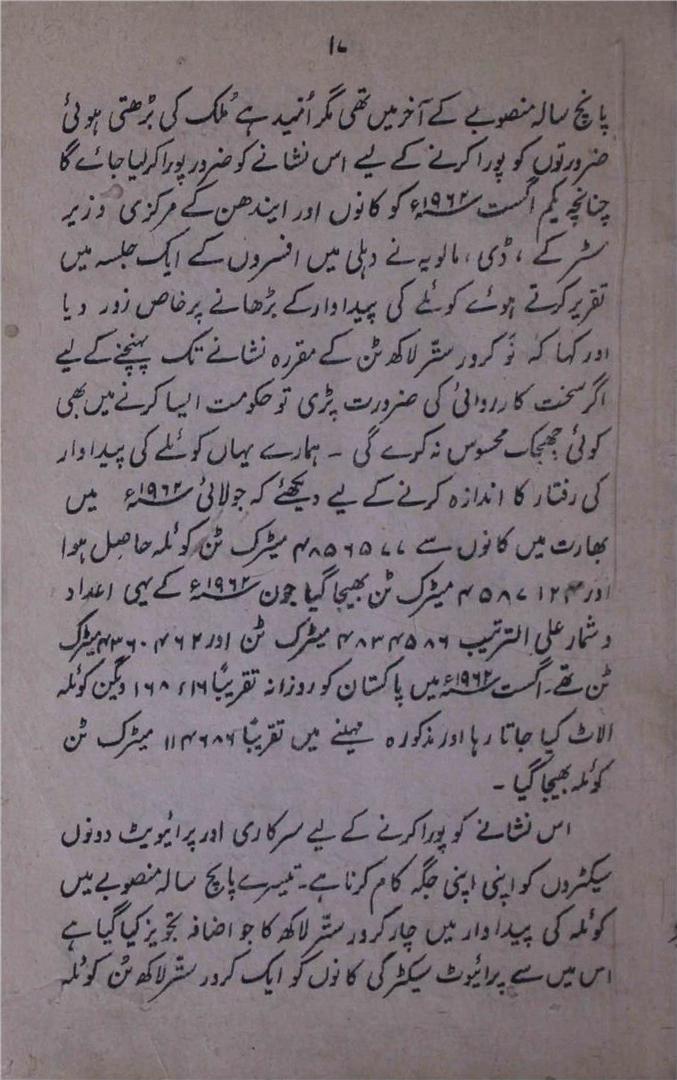 ۱۷
پانچ سالہ منصوبے کے آخر میں تھی مگر اُمید ہے مُلک کی بڑھتی ہوئی
ضرورتوں کو پورا کرنے کے لیے اس نشانے کو ضرور پورا کر لیا جائے گا
چنانچہ یکم اگست ۱۹۶۲ء کو کانوں اور ایندھن کے مرکزی وزیر
مسٹر کے ، ڈی ، مالویہ نے دہلی میں افسروں کے ایک جلسہ میں
تقریر کرتے ہوئے کوئلے کی پیداوار کے بڑھانے پر خاص زور دیا
اور کہا کہ نَو کرور ستّر لاکھ ٹن کے مقررہ نشانے تک پہنچنے کے لیے
اگر سخت کارروائی کی ضرورت پڑی تو حکومت ایسا کرنے میں بھی
کوئی جھجک محسوس نہ کرے گی ۔ ہمارے یہاں کوئلے کی پیداوار
کی رفتار کا اندازہ کرنے کے لیے دیکھئے کہ جولائی ۱۹۶۲ء میں
بھارت میں کانوں سے ۴۸۵۶۵۷۷ میٹرک ٹن کوئلہ حاصل ہوا
اور ۴۵۸۷۱۲۴ میٹرک ٹن بھیجا گیا جون ۱۹۶۲ء کے یہی اعداد
و شمار علی الترتیب ۴۸۳۴۵۸۶ میٹرک ٹن اور ۴۳۶۰۴۶۲ میٹرک
ٹن تھے۔ اگست ۱۹۶۲ء میں پاکستان کو روزانہ تقریباً ۱۶۸۶۱۶ ویگن کوئلہ
الاٹ کیا جاتا رہا اور مذکورہ مہینے میں تقریباً ۱۱۴۶۸۶ میٹرک ٹن
کوئلہ بھیجا گیا ۔
اس نشانے کو پورا کرنے کے لیے سرکاری اور پرائیویٹ دونوں
سیکٹروں کو اپنی اپنی جگہ کام کرنا ہے۔ تیسرے پانچ سالہ منصوبے میں
کوئلہ کی پیداوار میں چار کرور ستّر لاکھ کا جو اضافہ تجویز کیا گیا ہے
اس میں سے پرائیوٹ سیکٹر کی کانوں کو ایک کرور ستّر لاکھ ٹن کوئلہ